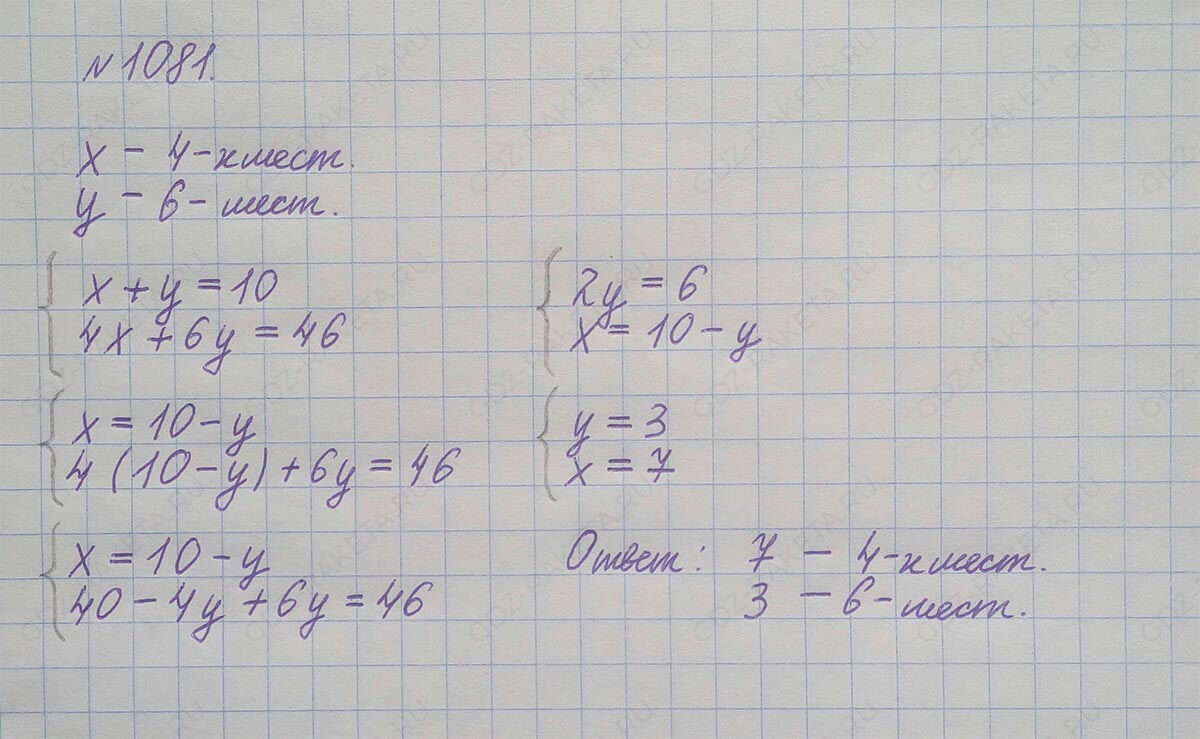 №1081.
x – 4-хмест.
y – 6-мест.
x + y = 10
4x + 6y = 46
x = 10 – y
4 (10 – y) + 6y = 46
x = 10 – y
40 – 4y + 6y = 46
2y = 6
x = 10 – y
y = 3
x = 7
Ответ: 7 – 4-хмест.
3 – 6-мест.
GDZ-RAKETA.RU